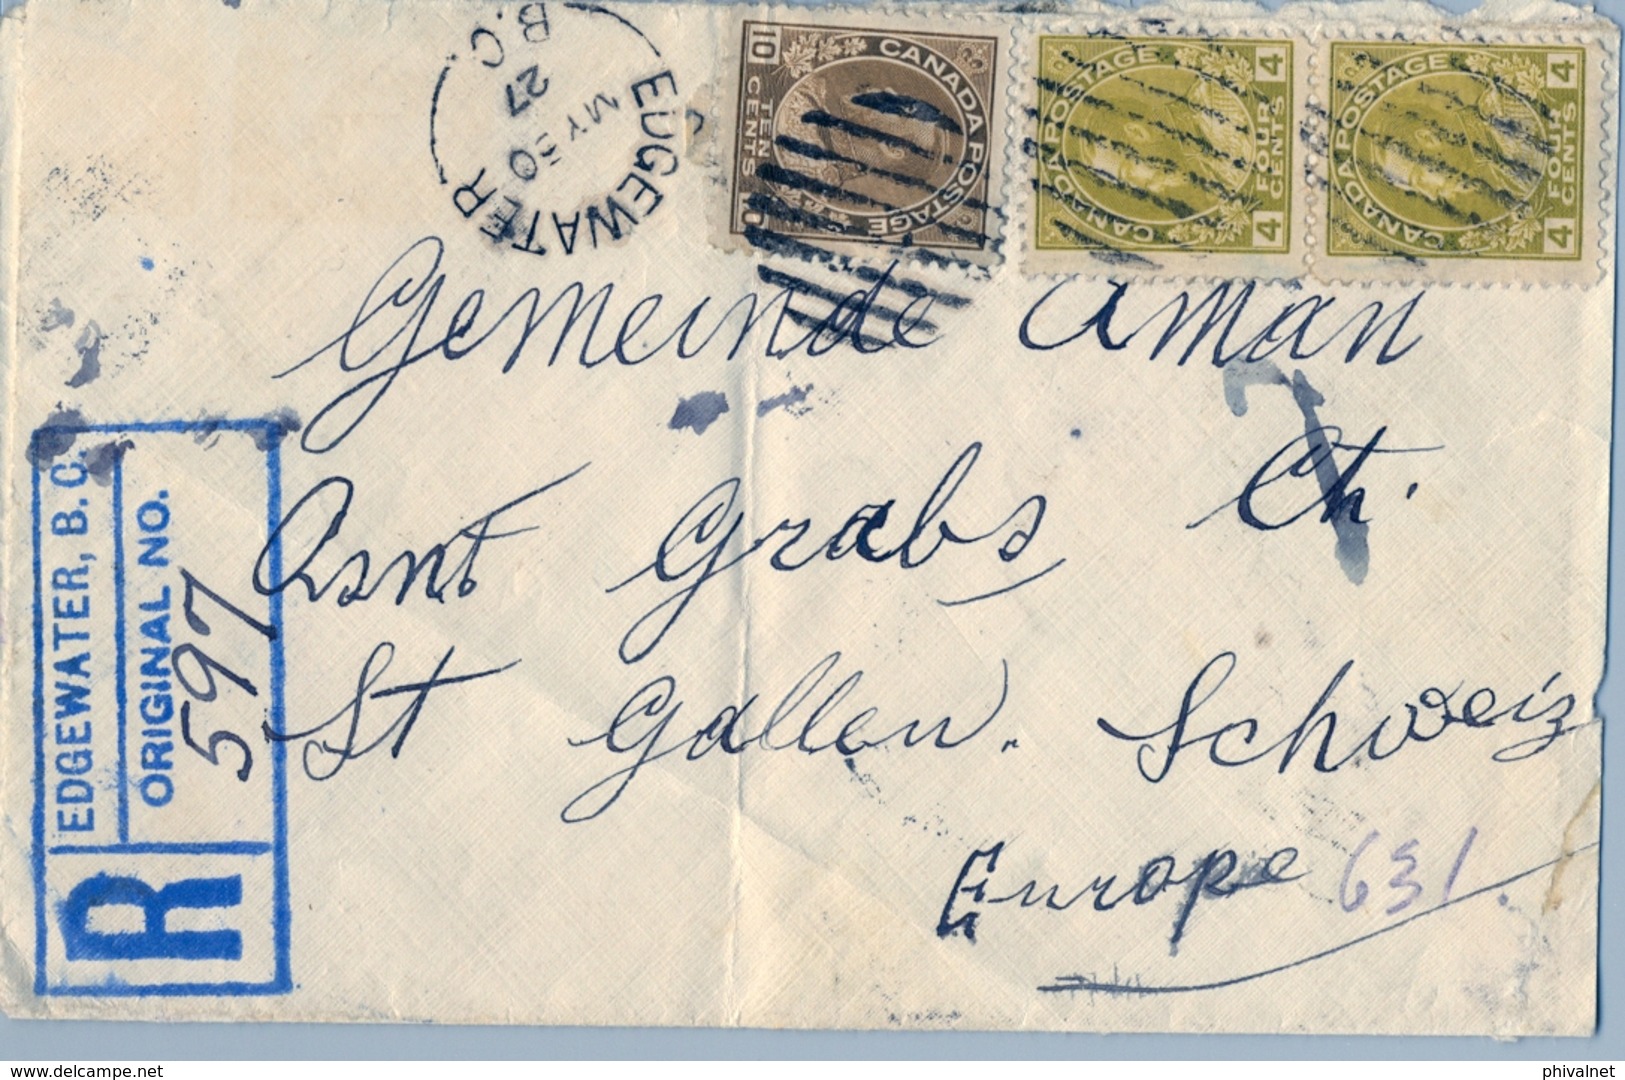 EDGEWATER
B.C.
MY 30
27
10 TEN CENTS 10
CANADA POSTAGE
4 FOUR CENTS 4
CANADA POSTAGE
4 FOUR CENTS 4
CANADA POSTAGE
Gemeinde Aman
Grabs Ct.
St Gallen. Schweiz
Europe 631
R
EDGEWATER, B.C.
ORIGINAL NO.
597
delcampe.net
phivalnet